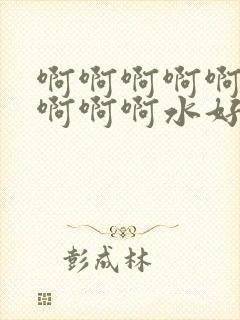 啊啊啊啊啊
啊啊啊水好
彭成林